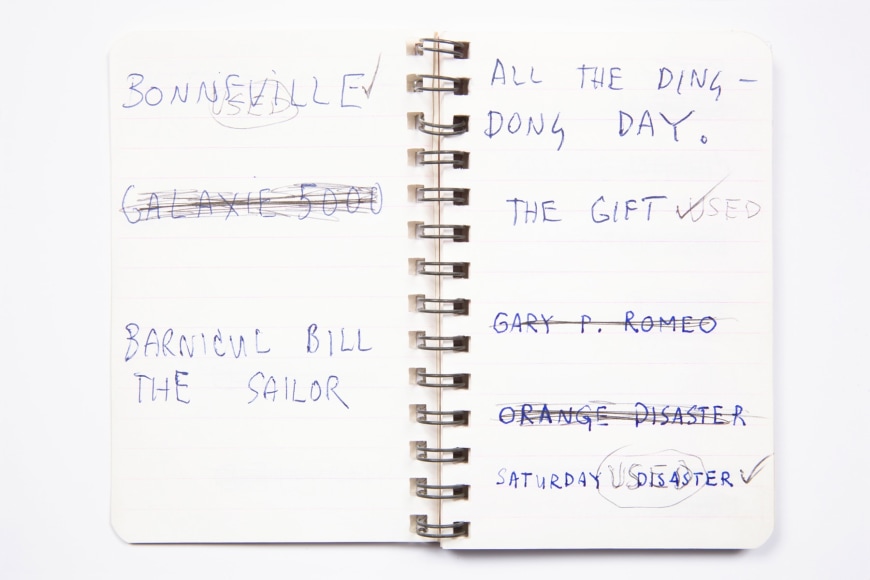 BONNEVILLE ✓
USED
GALAXIE 5000
BARNICUL BILL
THE SAILOR
ALL THE DING –
DONG DAY.
THE GIFT ✓ USED
GARY P. ROMEO
ORANGE DISASTER
SATURDAY DISASTER ✓
USED